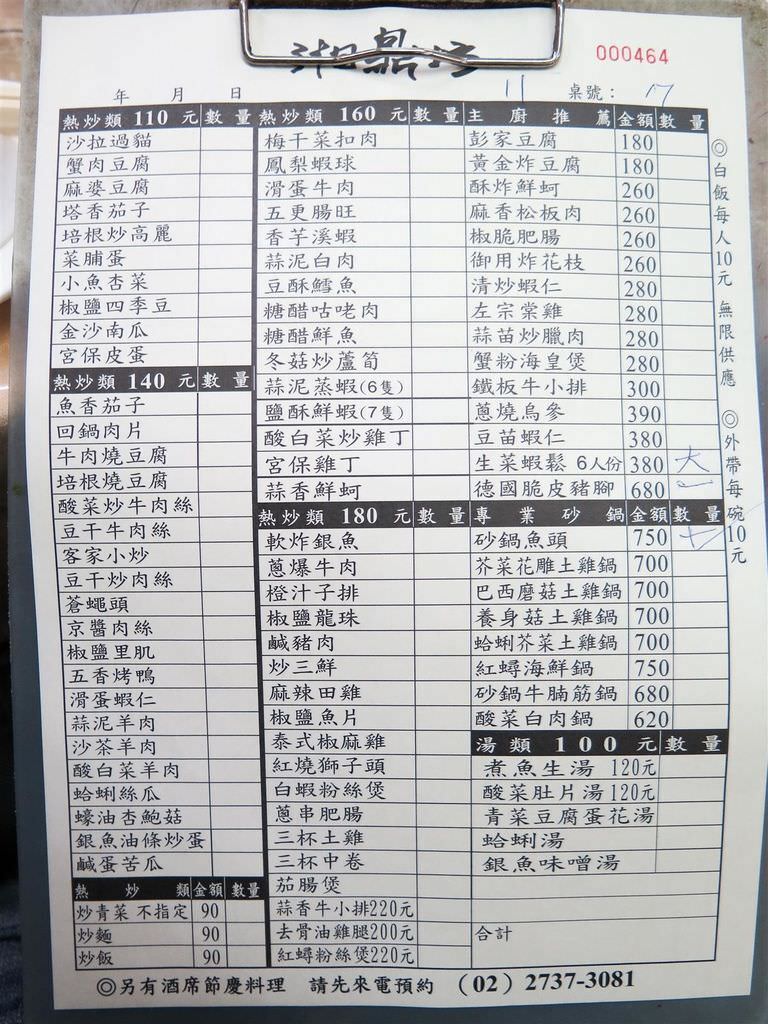 湘鼎坊
000464
年 月 日
11 桌號： 17
熱炒類 110 元 數量
沙拉過貓
蟹肉豆腐
麻婆豆腐
塔香茄子
培根炒高麗
菜脯蛋
小魚杏菜
椒鹽四季豆
金沙南瓜
宮保皮蛋
熱炒類 140 元 數量
魚香茄子
回鍋肉片
牛肉燒豆腐
培根燒豆腐
酸菜炒牛肉絲
豆干牛肉絲
客家小炒
豆干炒肉絲
蒼蠅頭
京醬肉絲
椒鹽里肌
五香烤鴨
滑蛋蝦仁
蒜泥羊肉
沙茶羊肉
酸白菜羊肉
蛤蜊絲瓜
蠔油杏鮑菇
銀魚油條炒蛋
鹹蛋苦瓜
熱炒類 金額 數量
炒青菜 不指定 90
炒麵 90
炒飯 90
熱炒類 160 元 數量
梅干菜扣肉
鳳梨蝦球
滑蛋牛肉
五更腸旺
香芋溪蝦
蒜泥白肉
豆酥鱈魚
糖醋咕咾肉
糖醋鮮魚
冬菇炒蘆筍
蒜泥蒸蝦(6隻)
鹽酥鮮蝦(7隻)
酸白菜炒雞丁
宮保雞丁
蒜香鮮蚵
熱炒類 180 元 數量
軟炸銀魚
蔥爆牛肉
橙汁子排
椒鹽龍珠
鹹豬肉
炒三鮮
麻辣田雞
椒鹽魚片
泰式椒麻雞
紅燒獅子頭
白蝦粉絲煲
蔥串肥腸
三杯土雞
三杯中卷
茄腸煲
蒜香牛小排220元
去骨油雞腿200元
紅蟳粉絲煲220元
主廚推薦 金額 數量
彭家豆腐 180
黃金炸豆腐 180
酥炸鮮蚵 260
麻香松板肉 260
椒脆肥腸 260
御用炸花枝 260
清炒蝦仁 280
左宗棠雞 280
蒜苗炒臘肉 280
蟹粉海皇煲 280
鐵板牛小排 300
蔥燒烏參 390
豆苗蝦仁 380
生菜蝦鬆 6人份 380 大
德國脆皮豬腳 680
專業砂鍋 金額 數量
砂鍋魚頭 750
芥菜花雕土雞鍋 700
巴西磨菇土雞鍋 700
養身菇土雞鍋 700
蛤蜊芥菜土雞鍋 700
紅蟳海鮮鍋 750
砂鍋牛腩筋鍋 680
酸菜白肉鍋 620
湯類 100 元 數量
煮魚生湯 120元
酸菜肚片湯 120元
青菜豆腐蛋花湯
蛤蜊湯
銀魚味噌湯
合計
◎白飯每人10元 無限供應 ◎外帶每碗10元
◎另有酒席節慶料理 請先來電預約 (02) 2737-3081